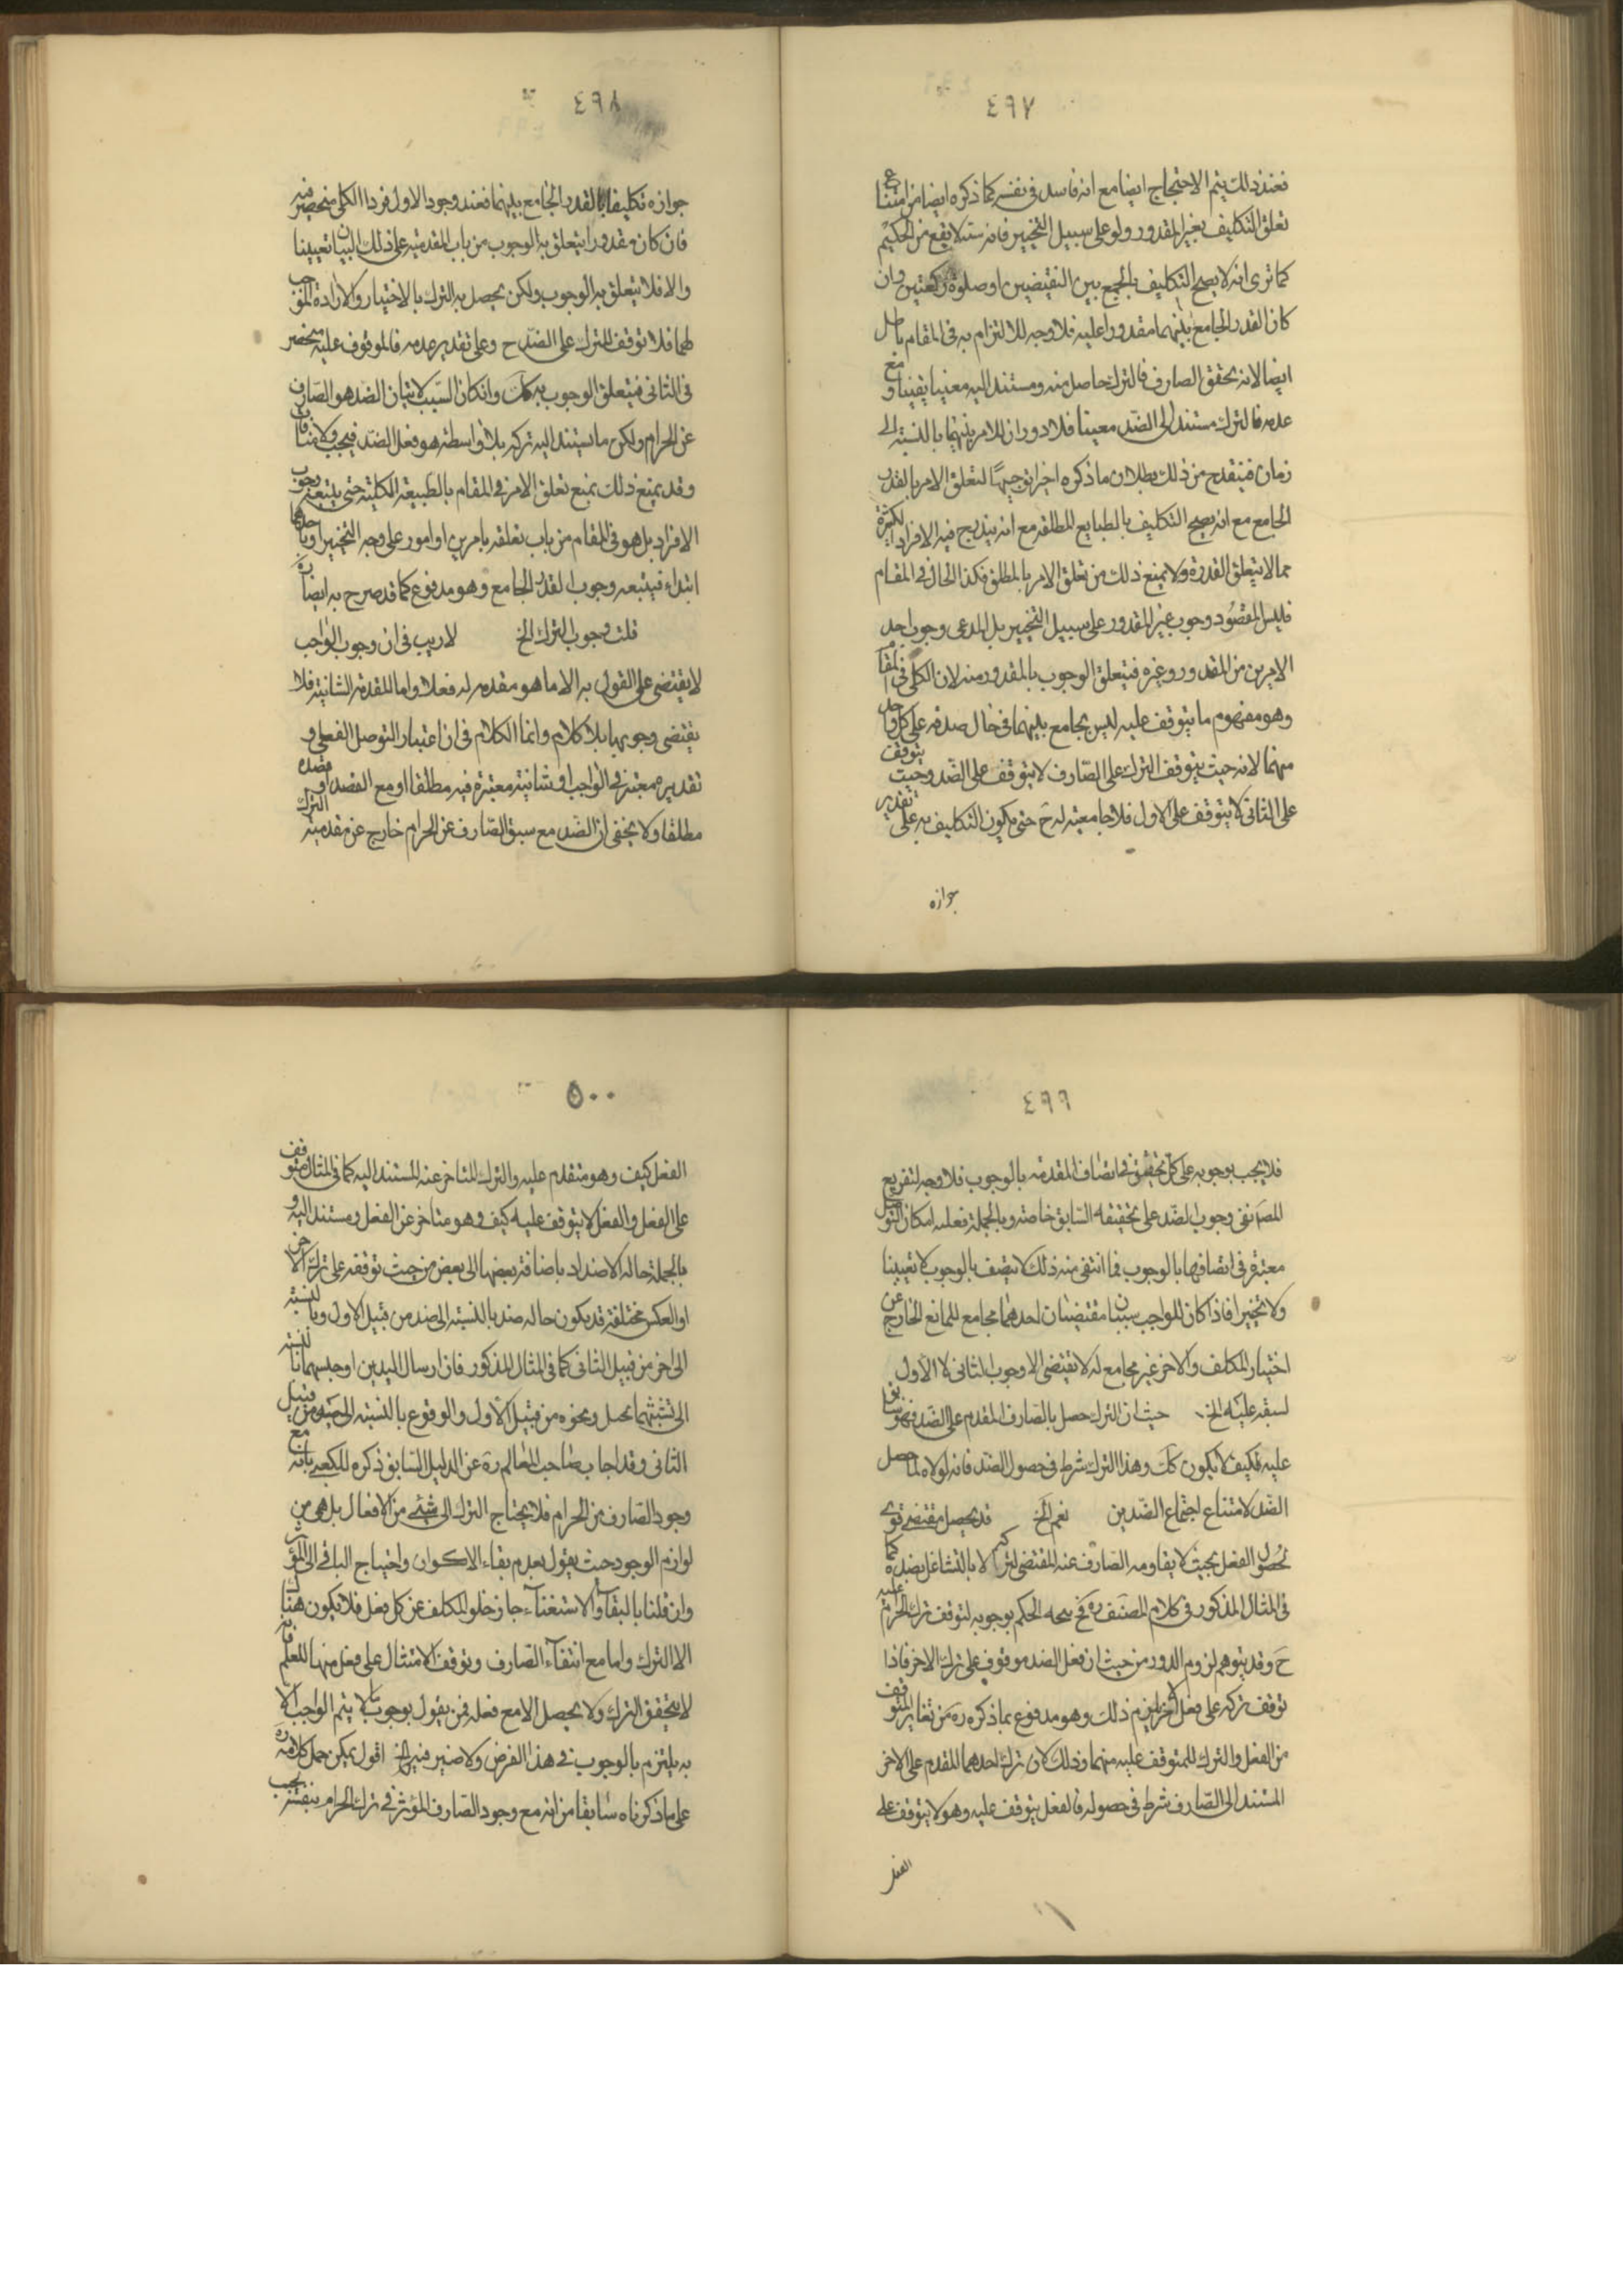 ٤٩٧
فعند ذلك يتم الاحتجاج ايضا مع انه فاسد فى نفسه كما ذكره ايضا من امتناع
تعلق التكليف بغير المقدور ولو على سبيل التخيير فانه لا يقع من الحكيم
كما ترى انه لا يصح التكليف بالجمع بين النقيضين او صلوة ركعتين وان
كان القدر الجامع بينهما مقدورا عليه فلا وجه للالتزام به فى المقام باطل
ايضا لانه بتحقق الصارف فالترك حاصل منه ومستند اليه معينا يقينا ومع
عدمه فالترك مستند الى الضد معينا فلا دوران للامر بينهما بالنسبة الى
زمان فينقدح من ذلك بطلان ما ذكره اخيرا توجيها لتعلق الامر بالقدر
الجامع مع انه يصح التكليف بالطبايع المطلقة مع انه يندرج فيه الافراد الكثيرة
مما لا يتعلق القدرة ولا يمنع ذلك من تعلق الامر بالمطلق فكذا الحال فى المقام
فليس المقصود وجوب غير المقدور على سبيل التخيير بل المدعى وجوب احد
الامرين من المقدور وغيره فيتعلق الوجوب بالمقدور منه لان الكلى فى المقام
وهو مفهوم ما يتوقف عليه ليس بجامع بينهما فى حال صدقه على كل واحد
منهما لانه حيث يتوقف الترك على الصارف لا يتوقف على الضد وحيث يتوقف
على الثانى لا يتوقف على الاول فلا جامعية له ح حتى يكون التكليف به على تقدير
جوازه
٤٩٨
جوازه تكليفا بالقدر الجامع بينهما فعند وجود الاول فرد الكلى منحصر فيه
فان كان مقدورا يتعلق به الوجوب من باب المقدمية على ذلك البيان تعيينا
والا فلا يتعلق به الوجوب ولكن يحصل به الترك بالاختيار والارادة الموجب
لهما فلا توقف للترك على الضد ح وعلى تقدير عدمه فالموقوف عليه منحصر
فى الثانى فيتعلق الوجوب به كك وانكان السبب لاتيان الضد هو الصارف
عن الحرام ولكن ما يستند اليه تركه بلا واسطة هو فعل الضد فيجب ولا منافاة
وقد يمنع ذلك بمنع تعلق الامر فى المقام بالطبيعة الكلية حتى يتبعه وجوب
الافراد بل هو فى المقام من باب تعلقه بامرين او امور على وجه التخيير او باحدهما
ابتداء فيتبعه وجوب القدر الجامع وهو مدفوع كما قد صرح به ايضا ره
قلت وجوب الترك الخ لا ريب فى ان وجوب الواجب
لا يقتضى على القول به الا ما هو مقدمة له فعلا واما المقدمة الشانية فلا
يقتضى وجوبها بلا كلام وانما الكلام فى ان اعتبار التوصل الفعلى و
تقديره معتبر فى الواجب او شانيته معتبرة فيه مطلقا او مع القصد او قصده
مطلقا ولا يخفى ان الضد مع سبق الصارف عن الحرام خارج عن مقدمية الترك
٤٩٩
فلا يجب بوجوبه على كل تحقيق فى اتصاف المقدمة بالوجوب فلا وجه لتفريع
المصنف وجوب الضد على تحقيقه السابق خاصة وبالجملة فعلية امكان التوصل
معتبرة فى اتصافها بالوجوب فما انتفى منه ذلك لا يتصف بالوجوب لا تعيينا
ولا تخييرا فاذا كان للواجب سببان مقتضيان احدهما مجامع للمانع الخارج عن
اختيار المكلف والاخر غير مجامع له لا يقتضى الا وجوب الثانى لا الاول
لسبقه عليه الخ حيث ان الترك حصل بالصارف المقدم على الضد فهو سابق
عليه فكيف لا يكون كك وهذا الترك شرط فى حصول الضد فانه لولاه لما حصل
الضد لامتناع اجتماع الضدين نعم الخ قد يحصل مقتضى قوى
لحصول الفعل بحيث لا يقاومه الصارف عنه المقتضى لتركه الا بالتشاغل بضده كما
فى المثال المذكور فى كلام المصنف ره فح يتجه الحكم بوجوبه لتوقف ترك الحرام عليه
ح وقد يتوهم لزوم الدور من حيث ان فعل الضد موقوف على ترك الاخر فاذا
توقف تركه على فعل الاخر لزم ذلك وهو مدفوع بما ذكره ره من تغاير المتوقف
من الفعل والترك للمتوقف عليه منهما وذلك لان ترك احدهما المقدم على الاخر
المستند الى الصارف شرط فى حصوله فالفعل يتوقف عليه وهو لا يتوقف على
الفعل
٥٠٠
الفعل كيف وهو متقدم عليه والترك المتاخر عنه المستند اليه كما فى المثال متوقف
على الفعل والفعل لا يتوقف عليه كيف وهو متاخر عن الفعل ومستند اليه و
بالجملة حالة الاضداد باضافة بعضها الى بعض من حيث توقفه على ترك الاخر
او العكس مختلفة قد يكون حاله ضد بالنسبة الى ضد من قبيل الاول وبالنسبة
الى اخر من قبيل الثانى كما فى المثال المذكور فان ارسال اليدين او حبسهما بالنسبة
الى تشبثهما بحبل ونحوه من قبيل الاول والوقوع بالنسبة الى من قبيل
الثانى وقد اجاب صاحب المعالم ره عن الدليل السابق ذكره للكعبى بانه مع
وجود الصارف من الحرام فلا يحتاج الترك الى شئ من الافعال بل هى من
لوازم الوجود حيث يقول بعدم بقاء الاكوان واحتياج الباقى الى المؤثر
وان قلنا بالبقاء والاستغناء جاز خلو المكلف عن كل فعل فلا يكون هناك
الا الترك واما مع انتفاء الصارف وتوقف الامتثال على فعل منها للعلم بانه
لا يتحقق الترك ولا يحصل الا مع فعله فمن يقول بوجوب ما لا يتم الواجب الا
به يلتزم بالوجوب فى هذا الفرض ولا ضير فيه الخ اقول يمكن حمل كلامه ره
على ما ذكرناه سابقا من انه مع وجود الصارف المؤثر فى ترك الحرام بنفسه يجب